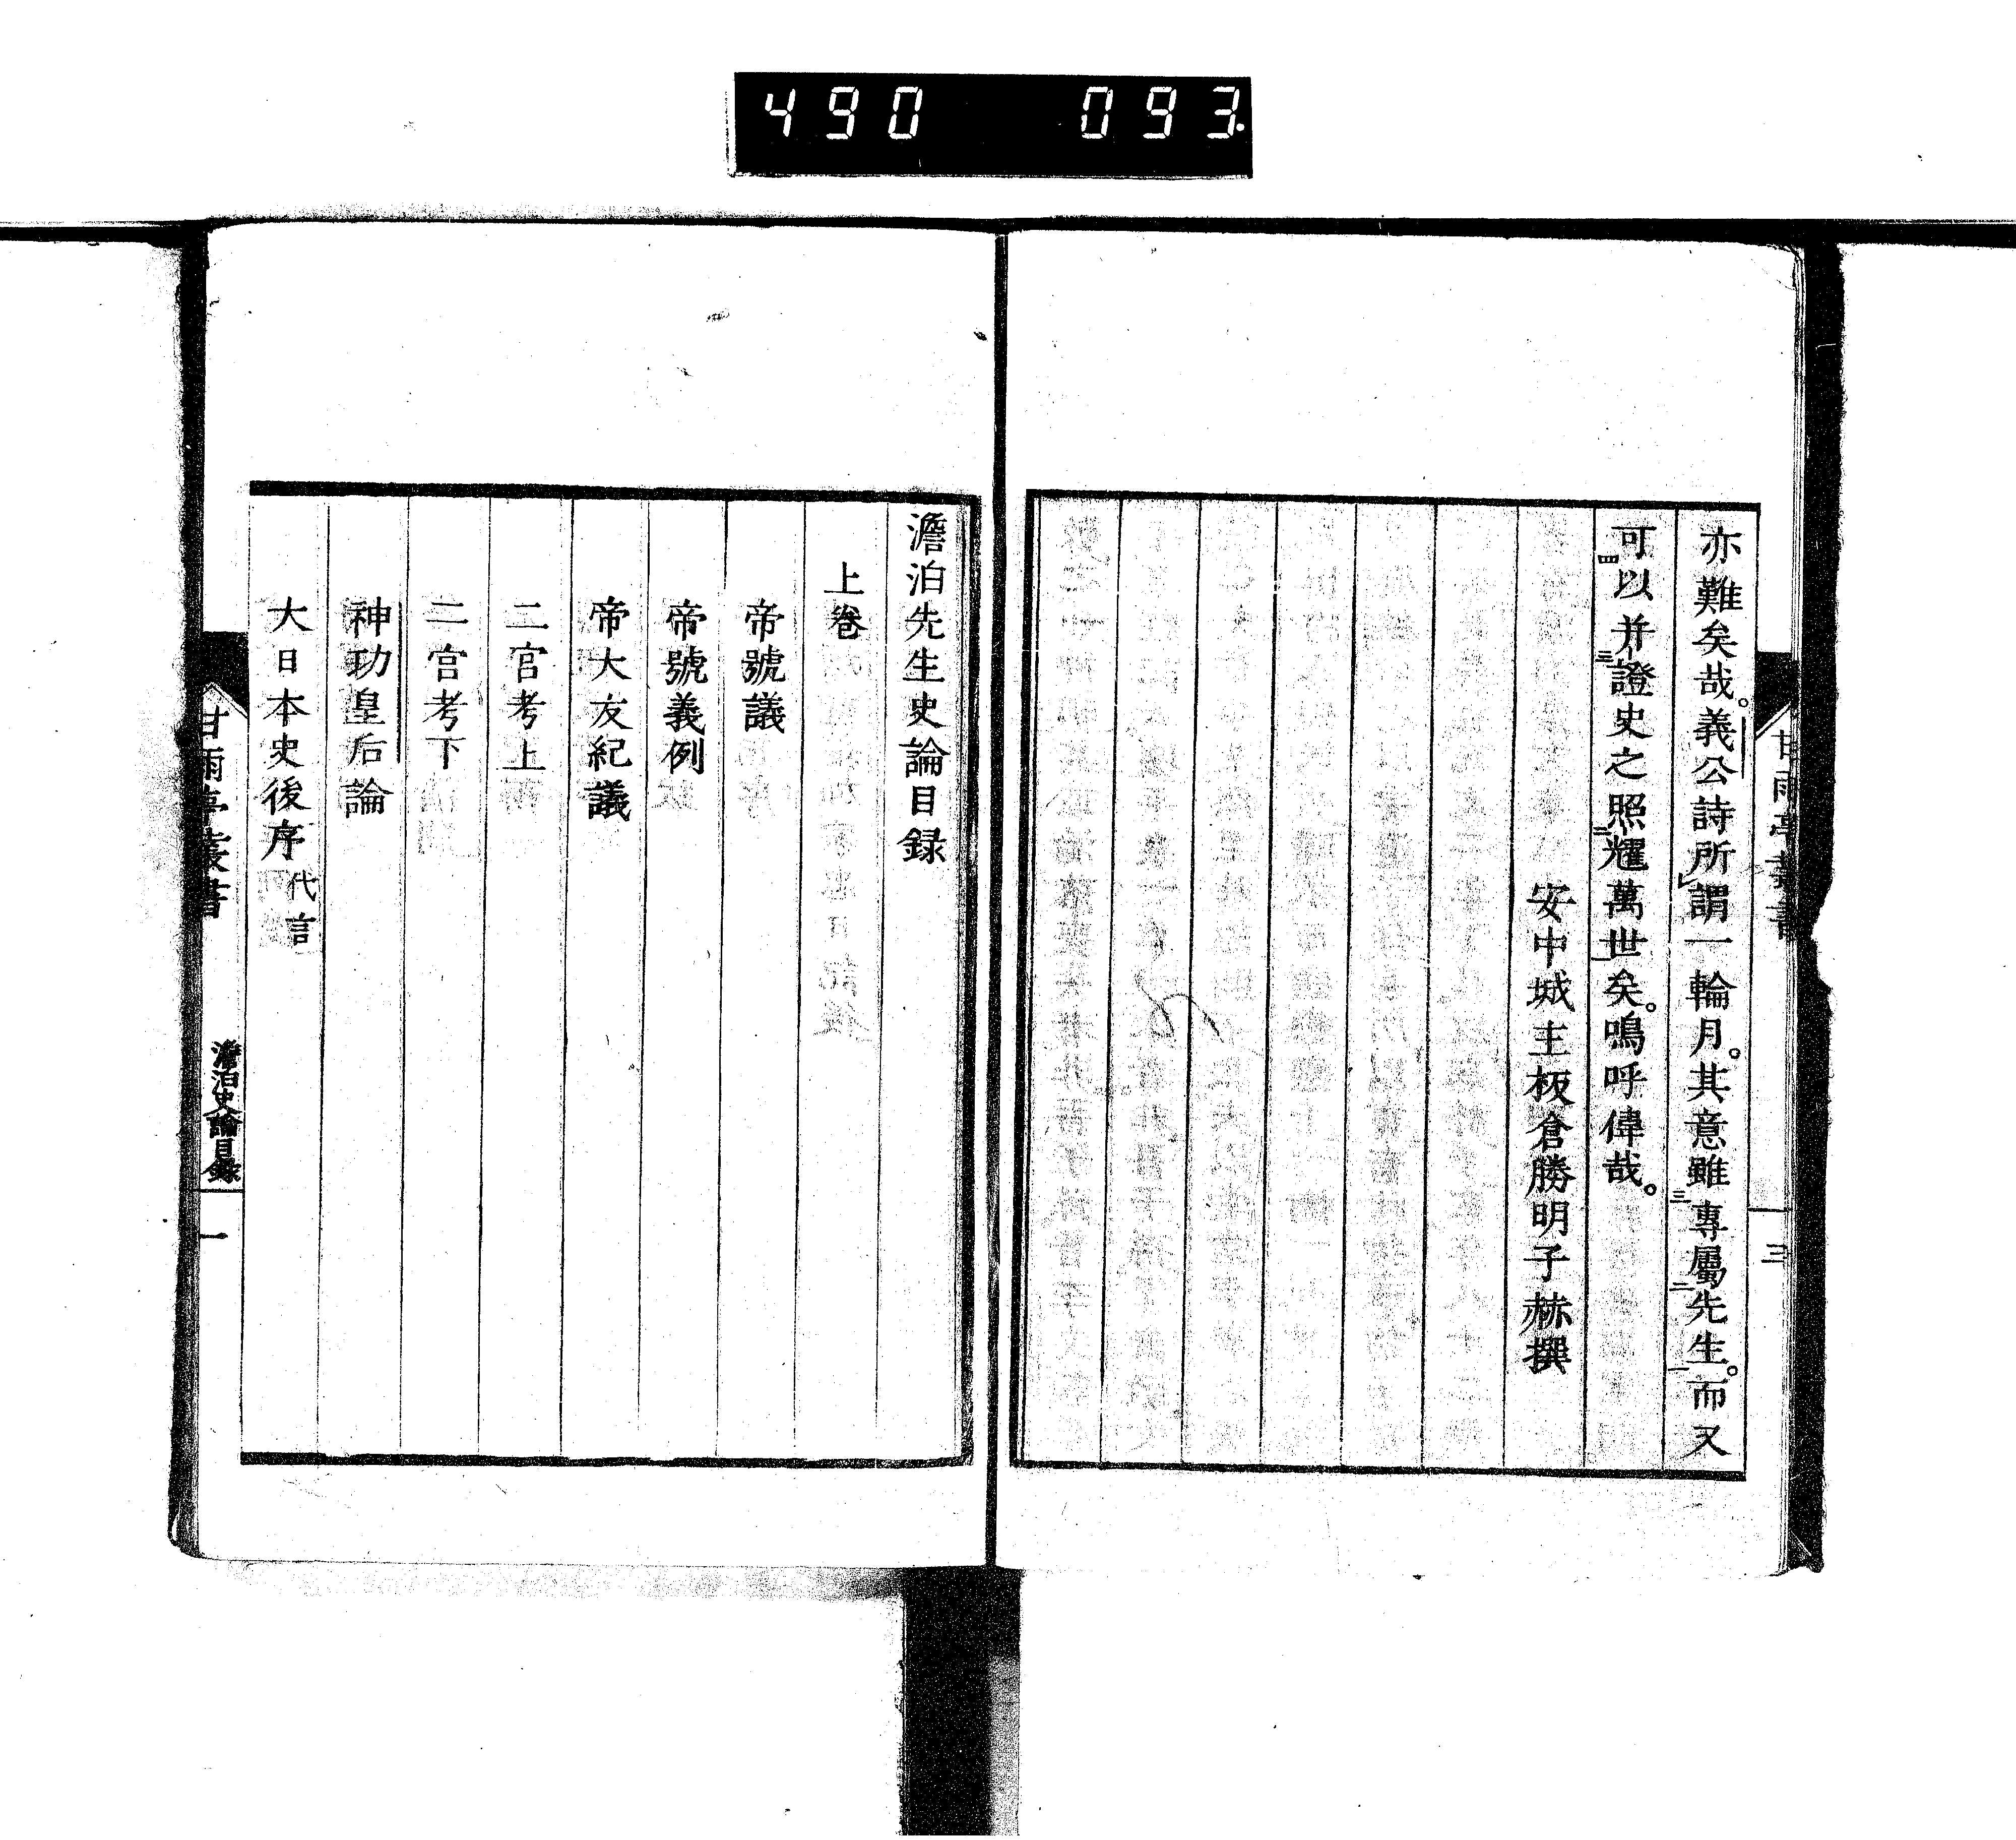 490 093.
甘雨亭叢書
三
亦難矣哉。義公詩所謂一輪月。其意雖專屬先生。而又
可以并證史之照耀萬世矣。嗚呼偉哉。
安中城主板倉勝明子赫撰
澹泊先生史論目録
上卷
帝號議
帝號義例
帝大友紀議
二宮考上
二宮考下
神功皇后論
大日本史後序代言
甘雨亭叢書
澹泊史論目録
一